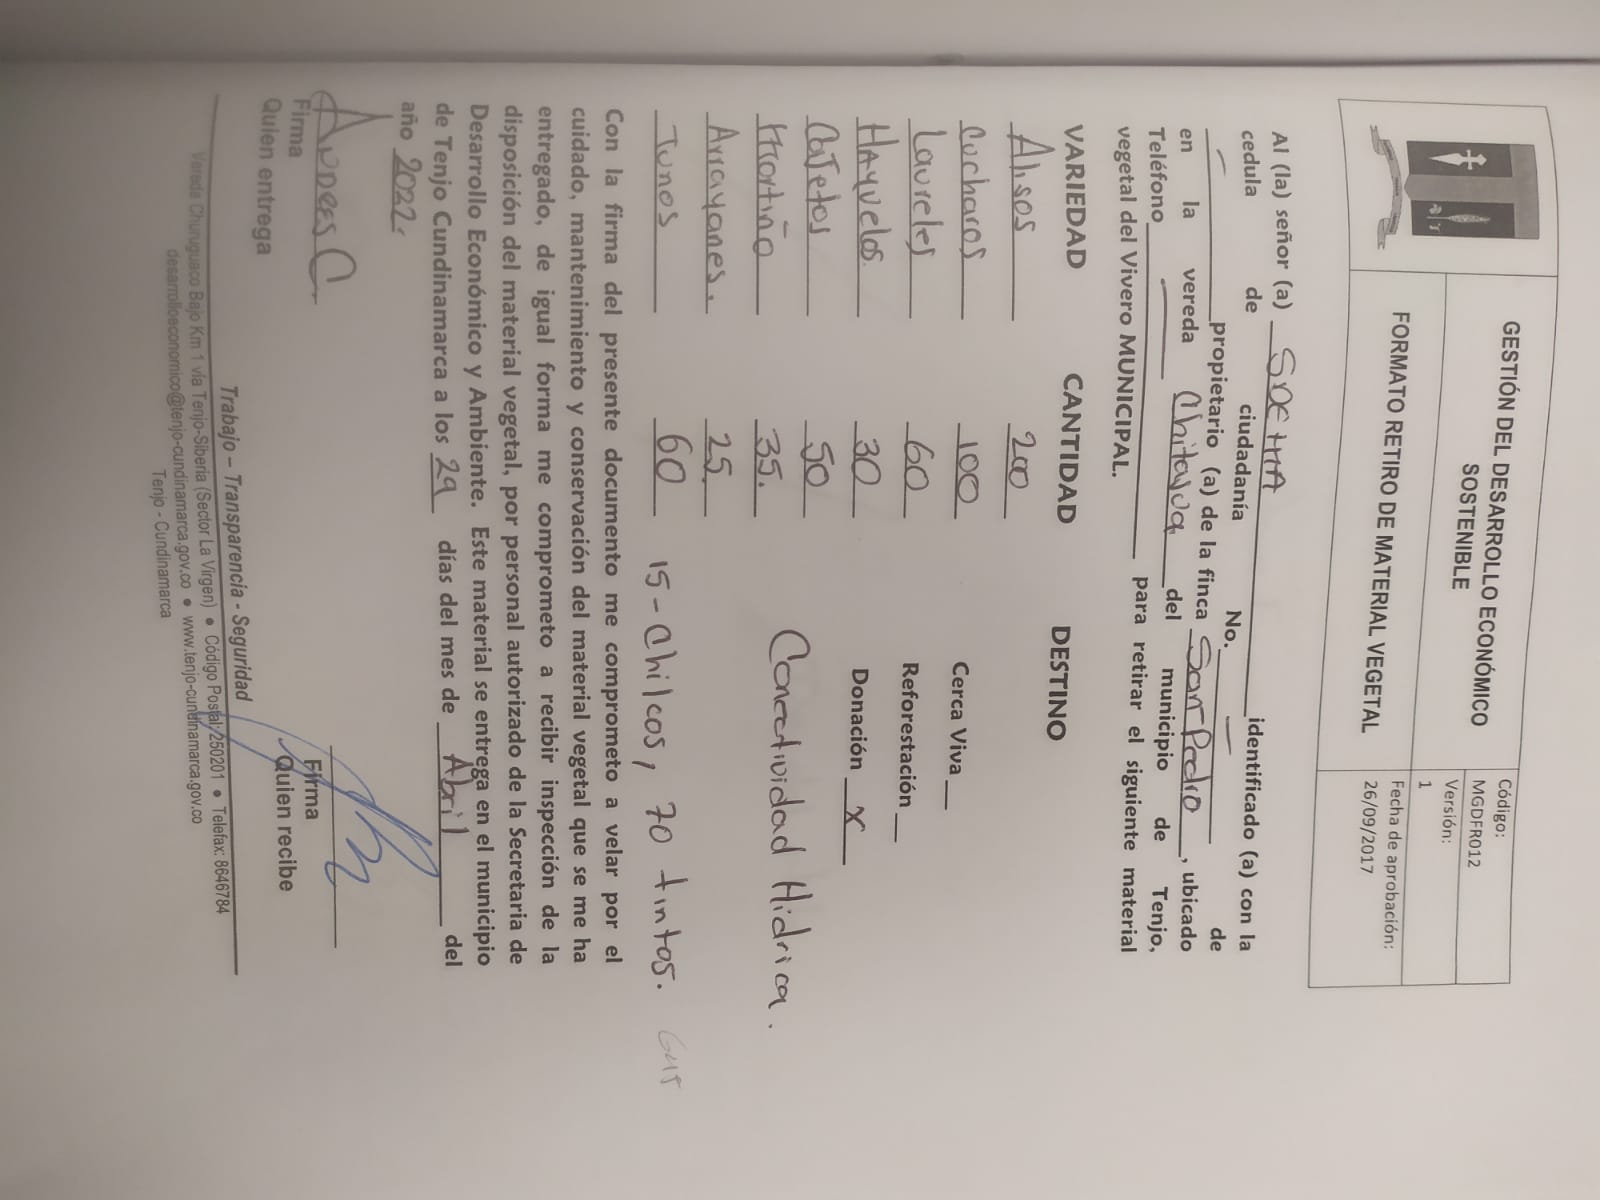 GESTIÓN DEL DESARROLLO ECONÓMICO
SOSTENIBLE
FORMATO RETIRO DE MATERIAL VEGETAL
Código:
MGDFR012
Versión:
1
Fecha de aprobación:
26/09/2017
Al (la) señor (a) SDEMA identificado (a) con la
cedula de ciudadanía No. — de
— propietario (a) de la finca San Pedro, ubicado
en la vereda Chitasuga del municipio de Tenjo,
Teléfono — para retirar el siguiente material
vegetal del Vivero MUNICIPAL.
VARIEDAD CANTIDAD DESTINO
Alisos 200
Cucharos 100 Cerca Viva
Laureles 60 Reforestación
HAyuelos. 30 Donación X
Cajetos 50
Mortiño 35. Conectividad Hidrica.
Arrayanes. 25.
Tunos 60 15-Chilcos, 70 tintos. 645
Con la firma del presente documento me comprometo a velar por el
cuidado, mantenimiento y conservación del material vegetal que se me ha
entregado, de igual forma me comprometo a recibir inspección de la
disposición del material vegetal, por personal autorizado de la Secretaria de
Desarrollo Económico y Ambiente. Este material se entrega en el municipio
de Tenjo Cundinamarca a los 29 días del mes de Abril del
año 2022.
Andres C
Firma
Quien entrega
Firma
Quien recibe
Trabajo – Transparencia - Seguridad
Vereda Churuguaco Bajo Km 1 vía Tenjo-Siberia (Sector La Virgen) ● Código Postal: 250201 ● Telefax: 8646784
desarrolloeconomico@tenjo-cundinamarca.gov.co ● www.tenjo-cundinamarca.gov.co
Tenjo - Cundinamarca